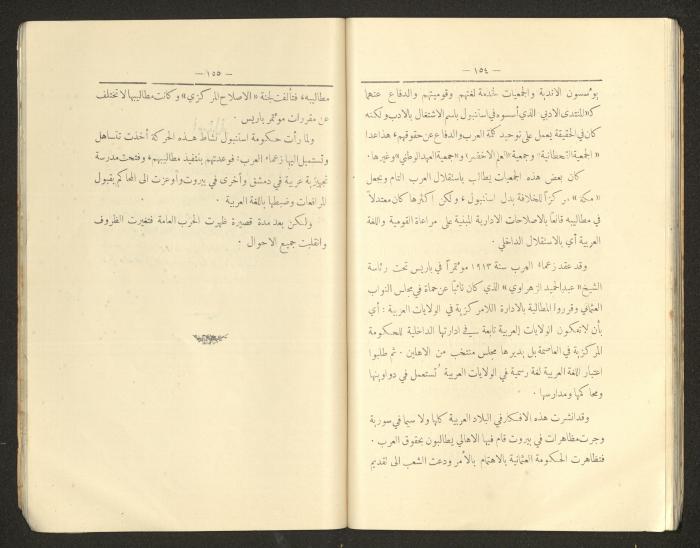 — ١٥٤ —
يؤسسون الاندية والجمعيات لخدمة لغتهم وقوميتهم والدفاع عنهما
كالمنتدى الادبي الذي أسسوه في استانبول باسم الاشتغال بالادب ولكنه
كان في الحقيقة يعمل على توحيد كلمة العرب والدفاع عن حقوقهم، هذا عدا
«الجمعية القحطانية» وجمعية «العلم الاخضر» و«جمعية العهد الوطني» وغيرها.
كان بعض هذه الجمعيات يطالب باستقلال العرب التام ويجعل
«مكة» مركزاً للخلافة بدل استانبول، ولكن اكثرها كان معتدلاً
في مطاليبه قانعاً بالاصلاحات الادارية المبنية على مراعاة القومية واللغة
العربية أي بالاستقلال الداخلي.
وقد عقد زعماء العرب سنة ١٩١٣ مؤتمراً في باريس تحت رئاسة
الشيخ «عبد الحميد الزهراوي» الذي كان نائباً عن حماة في مجلس النواب
العثماني وقرروا المطالبة بالادارة اللامركزية في الولايات العربية: أي
بأن لا تكون الولايات العربية تابعة في ادارتها الداخلية للحكومة
المركزية في العاصمة بل يديرها مجلس منتخب من الاهلين. ثم طلبوا
اعتبار اللغة العربية لغة رسمية في الولايات العربية تُستعمل في دواوينها
ومحاكمها ومدارسها.
وقد انشرت هذه الافكار في البلاد العربية كلها ولا سيما في سورية
وجرت مظاهرات في بيروت قام فيها الاهالي يطالبون بحقوق العرب.
فتظاهرت الحكومة العثمانية بالاهتمام بالأمر ودعت الشعب الى تقديم
— ١٥٥ —
مطاليبه، فتألفت لجنة «الاصلاح المركزي» وكانت مطاليبها لا تختلف
عن مقررات مؤتمر باريس.
ولما رأت حكومة استانبول نشاط هذه الحركة أخذت تتساهل
وتستميل اليها زعماء العرب: فوعدتهم بتنفيذ مطاليبهم، وفتحت مدرسة
تجهيزية عربية في دمشق وأخرى في بيروت وأوعزت الى المحاكم بقبول
المرافعات وضبطها باللغة العربية.
ولكن بعد مدة قصيرة ظهرت الحرب العامة فتغيرت الظروف
وانقلبت جميع الاحوال.